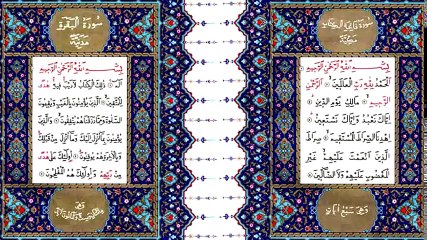 سورة فاتحة الكتاب
مكية
بسم الله الرحمن الرحيم
الحمد لله رب العالمين الرحمن
الرحيم مالك يوم الدين
إياك نعبد وإياك نستعين
إهدنا الصراط المستقيم صراط
الذين أنعمت عليهم غير
المغضوب عليهم ولا الضالين
وهي سبع آيات
سورة البقرة
مدنية
بسم الله الرحمن الرحيم
الم ذلك الكتاب لا ريب فيه هدى
للمتقين الذين يؤمنون بالغيب ويقيمون
الصلوة ومما رزقناهم ينفقون والذين
يؤمنون بما أنزل إليك وما أنزل من قبلك
وبالآخرة هم يوقنون أولئك على هدى
من ربهم وأولئك هم المفلحون